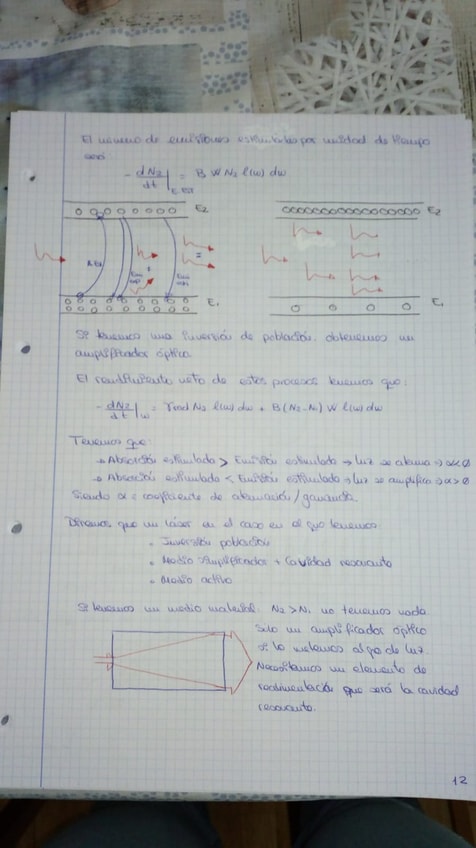 El número de emisiones estimuladas por unidad de tiempo
será
- dN2/dt |E.Est = B W N2 l(ω) dω
E2
E2
A.Est
Em
esp
Em
esti
E1
E1
Si tenemos una inversión de población obtenemos un
amplificador óptico.
El rendimiento neto de estos procesos tenemos que:
- dN2/dt |ω = γrad N2 l(ω) dω + B (N2-N1) W l(ω) dω
Tenemos que:
→ Absorción estimulada > Emisión estimulada → luz se atenua → α<0
→ Absorción estimulada < Emisión estimulada → luz se amplifica → α>0
Siendo α = coeficiente de atenuación/ganancia.
Diremos que un láser en el caso en el que tenemos:
• Inversión población
• Medio amplificador + Cavidad resonante
• Medio activo
Si tenemos un medio material. N2 > N1 no tenemos nada
solo un amplificador óptico
si lo metemos algo de luz.
Necesitamos un elemento de
realimentación que será la cavidad
resonante.
12